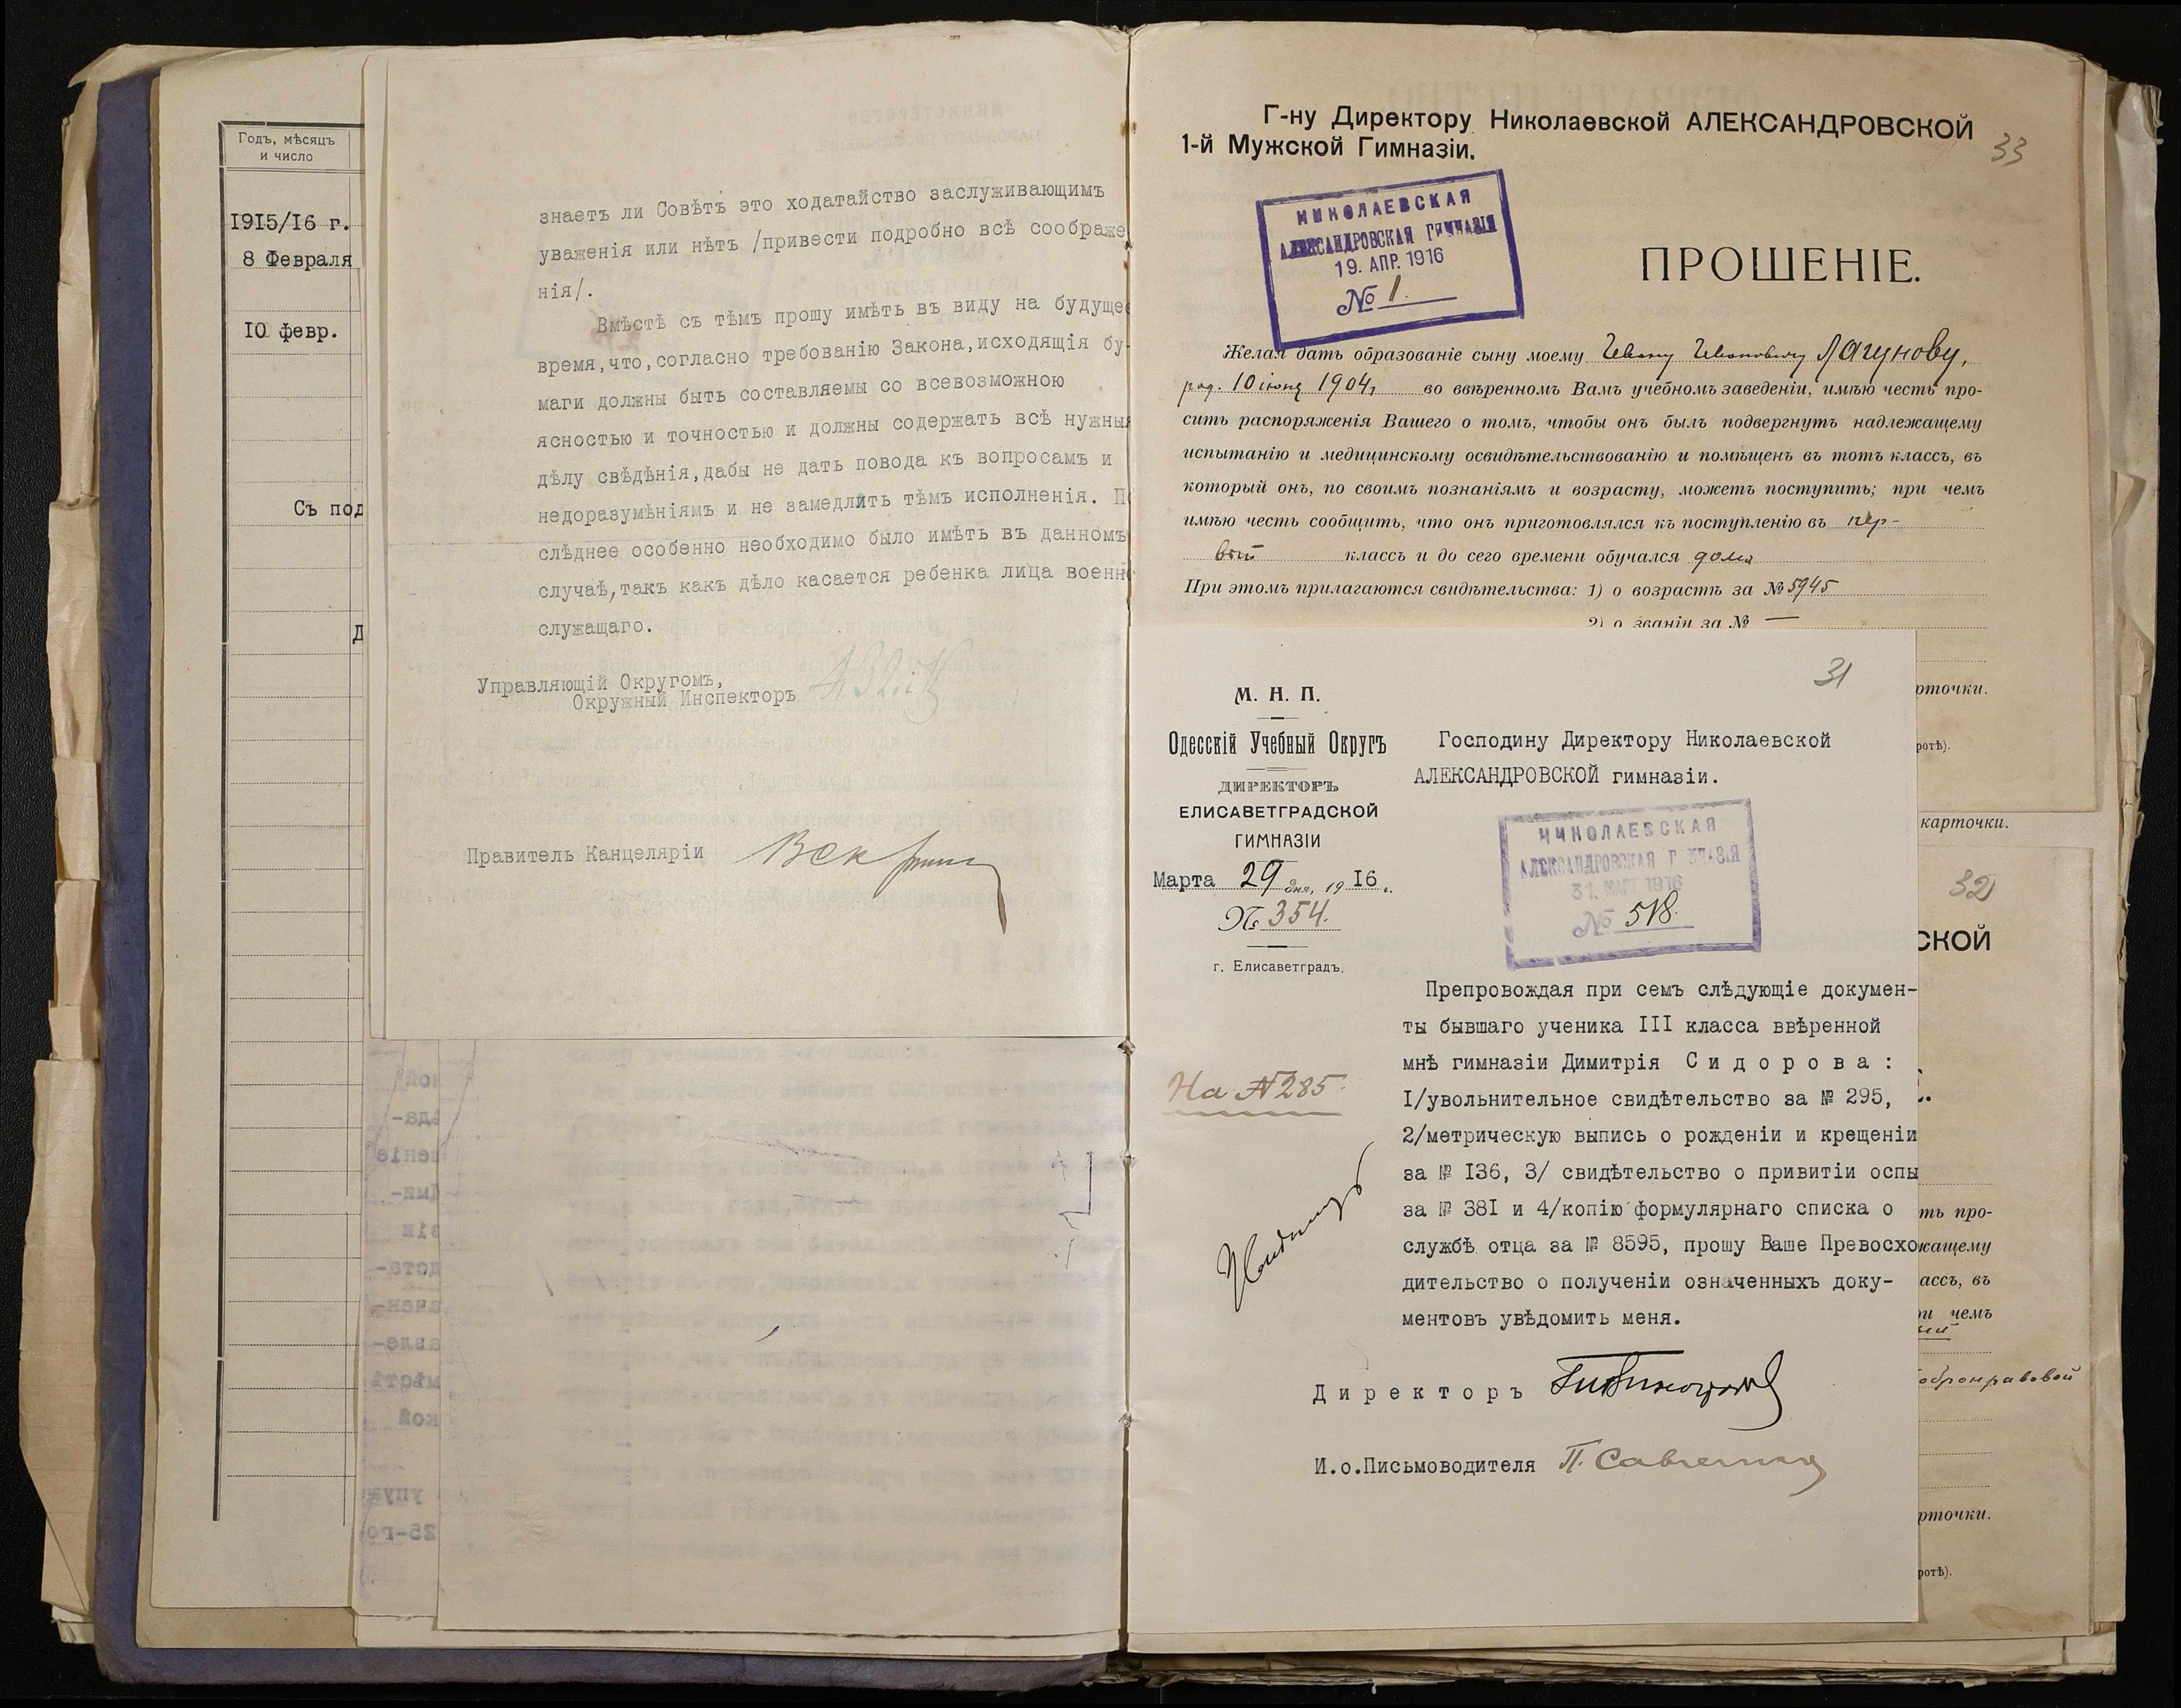 Годъ, мѣсяцъ
и число
1915/16 г.
8 Февраля
10 февр.
Съ под
Д
знаетъ ли Совѣтъ это ходатайство заслуживающимъ
уваженія или нѣтъ /привести подробно всѣ соображе
нія/.
Вмѣстѣ съ тѣмъ прошу имѣть въ виду на будущее
время,что,согласно требованію Закона,исходящія бу-
маги должны быть составляемы со всевозможною
ясностью и точностью и должны содержать всѣ нужныя
дѣлу свѣдѣнія,дабы не дать повода къ вопросамъ и
недоразумѣніямъ и не замедлить тѣмъ исполненія. По
слѣднее особенно необходимо было имѣть въ данномъ
случаѣ,такъ какъ дѣло касается ребенка лица военно
служащаго.
Управляющій Округомъ,
Окружный Инспекторъ
Правитель Канцеляріи
Г-ну Директору Николаевской АЛЕКСАНДРОВСКОЙ
1-й Мужской Гимназіи.
33
НИКОЛАЕВСКАЯ
АЛЕКСАНДРОВСКАЯ ГИМНАЗІЯ
19. АПР. 1916
№ 1.
ПРОШЕНІЕ.
Желая дать образованіе сыну моему Ивану Ивановичу Лагунову,
род. 10 іюня 1904 г. во ввѣренномъ Вамъ учебномъ заведеніи, имѣю честь про-
сить распоряженія Вашего о томъ, чтобы онъ былъ подвергнутъ надлежащему
испытанію и медицинскому освидѣтельствованію и помѣщенъ въ тотъ классъ, въ
который онъ, по своимъ познаніямъ и возрасту, можетъ поступить; при чемъ
имѣю честь сообщить, что онъ приготовлялся къ поступленію въ пер-
вый классъ и до сего времени обучался дома
При этомъ прилагаются свидѣтельства: 1) о возрастѣ за № 5945
2) о званіи за № —
рточки.
ротѣ).
карточки.
32
СКОЙ
ть про-
жащему
ассъ, въ
ри чемъ
рточки.
ротѣ).
31
М. Н. П.
Одесскій Учебный Округъ
ДИРЕКТОРЪ
ЕЛИСАВЕТГРАДСКОЙ
ГИМНАЗІИ
Марта 29 дня, 1916 г.
№ 354.
г. Елисаветградъ.
На № 285.
Господину Директору Николаевской
АЛЕКСАНДРОВСКОЙ гимназіи.
НИКОЛАЕВСКАЯ
АЛЕКСАНДРОВСКАЯ ГИМНАЗІЯ
31. МАРТ 1916
№ 518.
Препровождая при семъ слѣдующіе докумен-
ты бывшаго ученика III класса ввѣренной
мнѣ гимназіи Димитрія Сидорова:
I/увольнительное свидѣтельство за № 295,
2/метрическую выпись о рожденіи и крещеніи
за № 136, 3/ свидѣтельство о привитіи оспы
за № 381 и 4/копію формулярнаго списка о
службѣ отца за № 8595, прошу Ваше Превосхо
дительство о полученіи означенныхъ доку-
ментовъ увѣдомить меня.
Директоръ
И.о.Письмоводителя П. Савченко